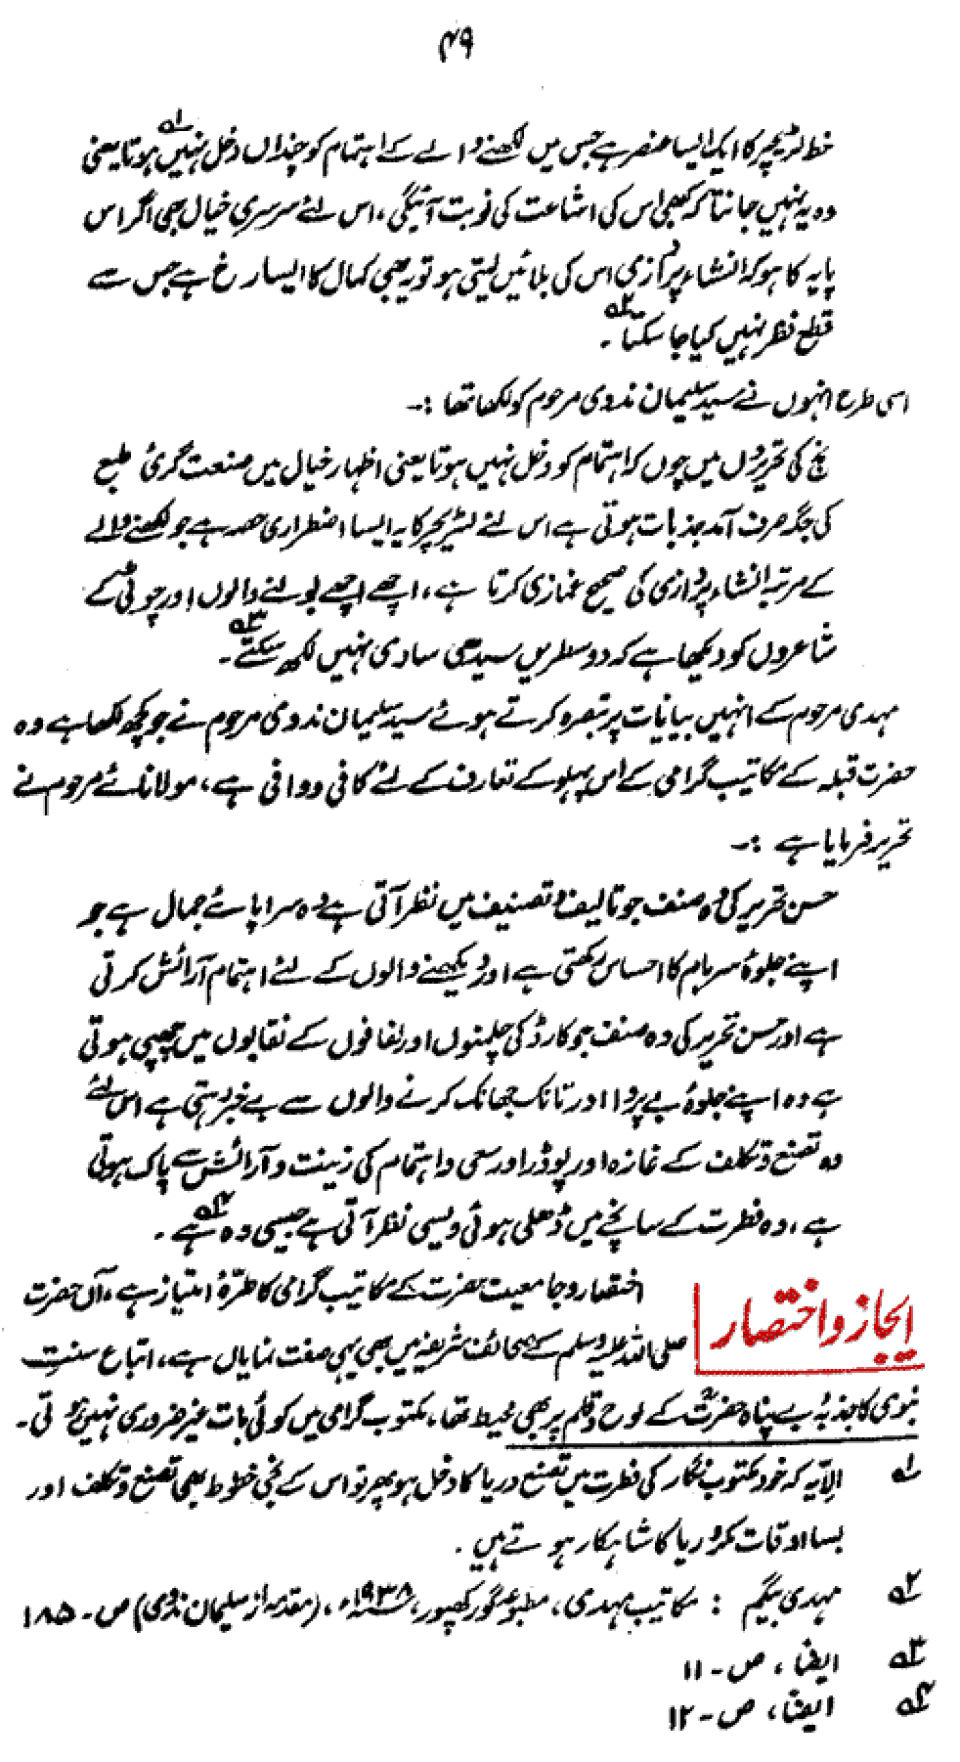 ۴۹
خط لٹریچر کا ایک ایسا عنصر ہے جس میں لکھنے والے کے اہتمام کو چنداں دخل نہیں ہوتا ۱ یعنی
وہ یہ نہیں جانتا کہ کبھی اس کی اشاعت کی نوبت آئیگی، اس لئے سرسری خیال بھی اگر اس
پایہ کا ہو کہ انشاء پردازی اس کی بلائیں لیتی ہو تو یہ بھی کمال کا ایسا رخ ہے جس سے
قطع نظر نہیں کیا جا سکتا ۲۔
اسی طرح انہوں نے سید سلیمان ندوی مرحوم کو لکھا تھا :۔
نج کی تحریروں میں چوں کہ اہتمام کو دخل نہیں ہوتا یعنی اظہار خیال میں صنعت گری طبع
کی جگہ صرف آمد جذبات ہوتی ہے اس لئے لٹریچر کا یہ ایسا اضطراری حصہ ہے جو لکھنے والے
کے مرتبہ انشاء پردازی کی صحیح غمازی کرتا ہے، اچھے اچھے بولنے والوں اور چوٹی کے
شاعروں کو دیکھا ہے کہ دو سطریں سیدھی سادی نہیں لکھ سکتے ۳۔
مہدی مرحوم کے انہیں بیانات پر تبصرہ کرتے ہوئے سید سلیمان ندوی مرحوم نے جو کچھ لکھا ہے وہ
حضرت قبلہ کے مکاتیب گرامی کے اس پہلو کے تعارف کے لئے کافی ووافی ہے، مولانائے مرحوم نے
تحریر فرمایا ہے :۔
حسن تحریر کی وہ صنف جو تالیف و تصنیف میں نظر آتی ہے وہ سراپائے جمال ہے جو
اپنے جلوۂ سربام کا احساس رکھتی ہے اور دیکھنے والوں کے لئے اہتمام آرائش کرتی
ہے اور حسن تحریر کی وہ صنف جو کارڈ کی چلمنوں اور لفافوں کے نقابوں میں چھپی ہوتی
ہے وہ اپنے جلوۂ بے پروا اور تانک جھانک کرنے والوں سے بے خبر رہتی ہے اس لئے
وہ تصنع و تکلف کے غازہ اور پوڈر اور سعی و اہتمام کی زینت و آرائش سے پاک ہوتی
ہے، وہ فطرت کے سانچے میں ڈھلی ہوئی ویسی نظر آتی ہے جیسی وہ ہے ۴۔
ایجاز و اختصار
اختصار و جامعیت حضرت کے مکاتیب گرامی کا طرۂ امتیاز ہے، آں حضرت
صلی اللہ علیہ وسلم کے صحائف شریفہ میں بھی یہی صفت نمایاں ہے، اتباع سنت
نبوی کا جذبہ بے پناہ حضرتؒ کے لوح و قلم پر بھی محیط تھا، مکتوب گرامی میں کوئی بات غیر ضروری نہیں ہوتی۔
۱ الا یہ کہ خود مکتوب نگار کی فطرت میں تصنع و ریا کا دخل ہو پھر تو اس کے نجی خطوط بھی تصنع و تکلف اور
بسا اوقات مکر و ریا کا شاہکار ہوتے ہیں۔
۲ مہدی بیگم : مکاتیب مہدی، مطبوعہ گورکھپور، ۱۹۳۸ء، (مقدمہ از سلیمان ندوی) ص۔ ۱۸۵
۳ ایضاً، ص۔ ۱۱
۴ ایضاً، ص۔ ۱۲